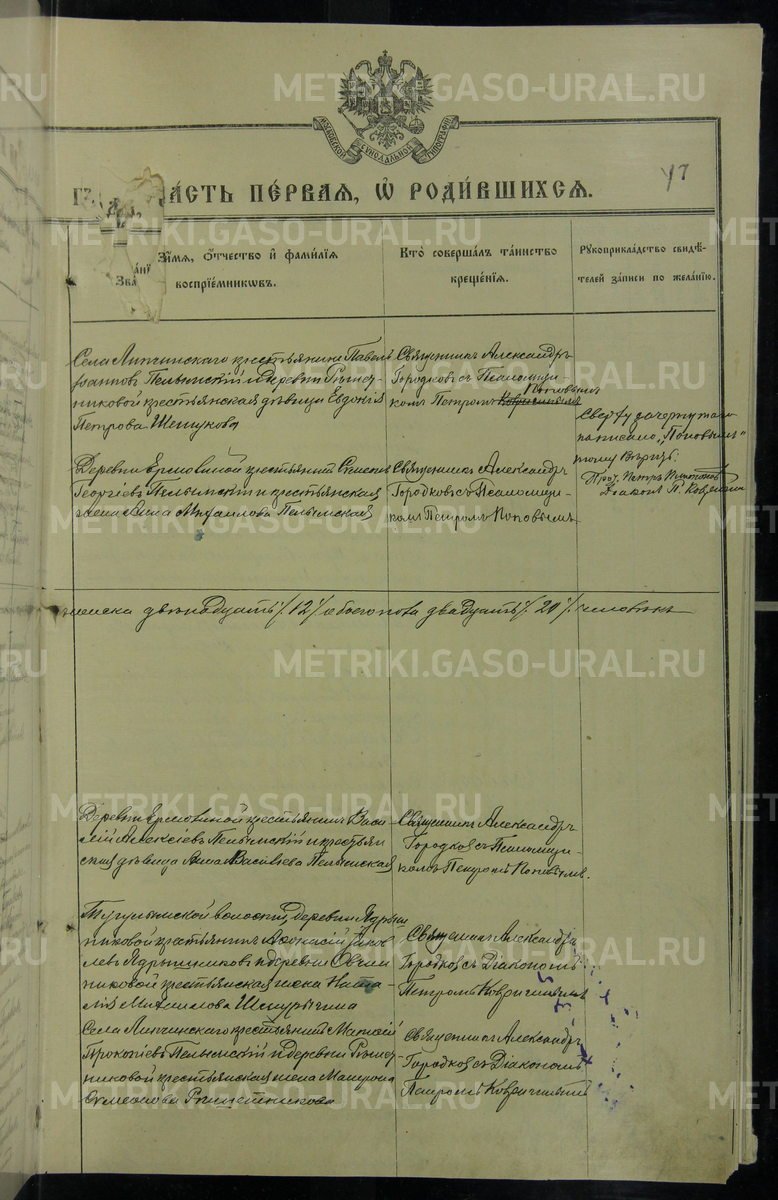 МОСКОВСКОЙ СѴНОДАЛЬНОЙ ТИПОГРАФІИ
47
ЧА́СТЬ ПЕ́РВАЯ, Ѡ РОДИ́ВШИХСѦ.
Зва́ніе, И́мя, ѻ҆́тчество и҆ фами́лїя
воспрїе́мникѡвъ.
Кто̀ соверша́лъ та́инство
креще́нїя.
Рукоприкла́дство свидѣ́-
телей за́писи по жела́нїю.
Села Липчинскаго крестьянинъ Павелъ
Пелымскій и деревни
никовой крестьянская дѣвица Евдокія
Петрова Шешукова
Священникъ Александръ
Городковъ съ Псаломщи-
комъ Петромъ Ковригинымъ Поповымъ
Сверху зачеркнутаго
написано „Поповымъ"
тому вѣрить:
Діаконъ П. Ковригинъ
Деревни Ермолиной крестьянинъ Симеонъ
Георгіевъ Пелымскій и крестьянская
жена Анна Михаилова Пелымская
Священникъ Александръ
Городковъ съ Псаломщи-
комъ Петромъ Поповымъ
женска двѣнадцать /12/ обоего пола двадцать /20/ человѣкъ
Деревни Ермолиной крестьянинъ Васи-
лій Алексіевъ Пелымскій и крестьян
ская дѣвица Анна Васильева Пелымская
Священникъ Александръ
Городковъ съ Псаломщи-
комъ Петромъ Поповымъ.
Тугулымской волости, деревни Ядрыш
никовой крестьянинъ Аѳонасій Яков
левъ Ядрышниковъ и деревни Овчин
никовой крестьянская жена Ната-
лія Михаилова
Священникъ Александръ
Городковъ съ Діакономъ
Петромъ Ковригинымъ
Села Липчинскаго крестьянинъ
Прокопіевъ Пелымскій и деревни
никовой крестьянская жена Матрона
Симеонова
Священникъ Александръ
Городковъ съ Діакономъ
Петромъ Ковригинымъ
METRIKI.GASO-URAL.RU